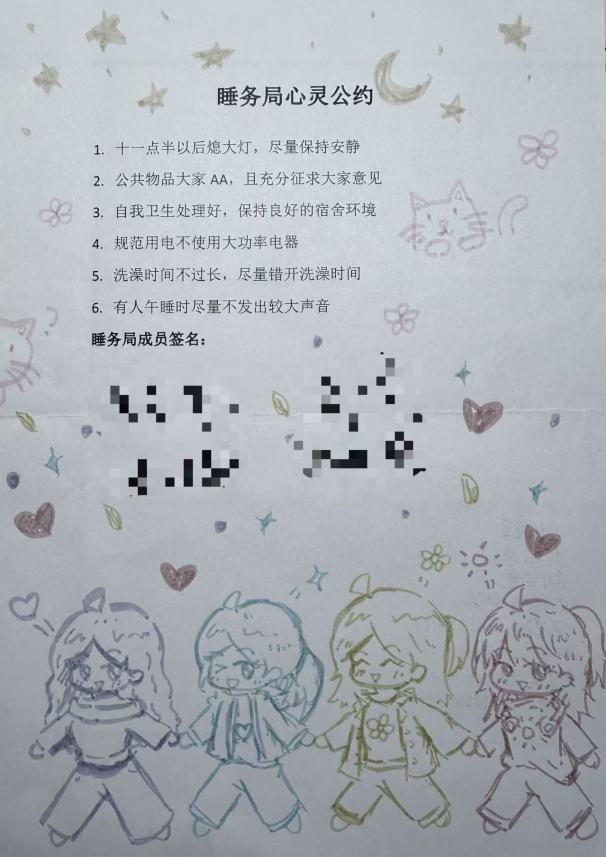 睡务局心灵公约
1. 十一点半以后熄大灯，尽量保持安静
2. 公共物品大家 AA，且充分征求大家意见
3. 自我卫生处理好，保持良好的宿舍环境
4. 规范用电不使用大功率电器
5. 洗澡时间不过长，尽量错开洗澡时间
6. 有人午睡时尽量不发出较大声音
睡务局成员签名：